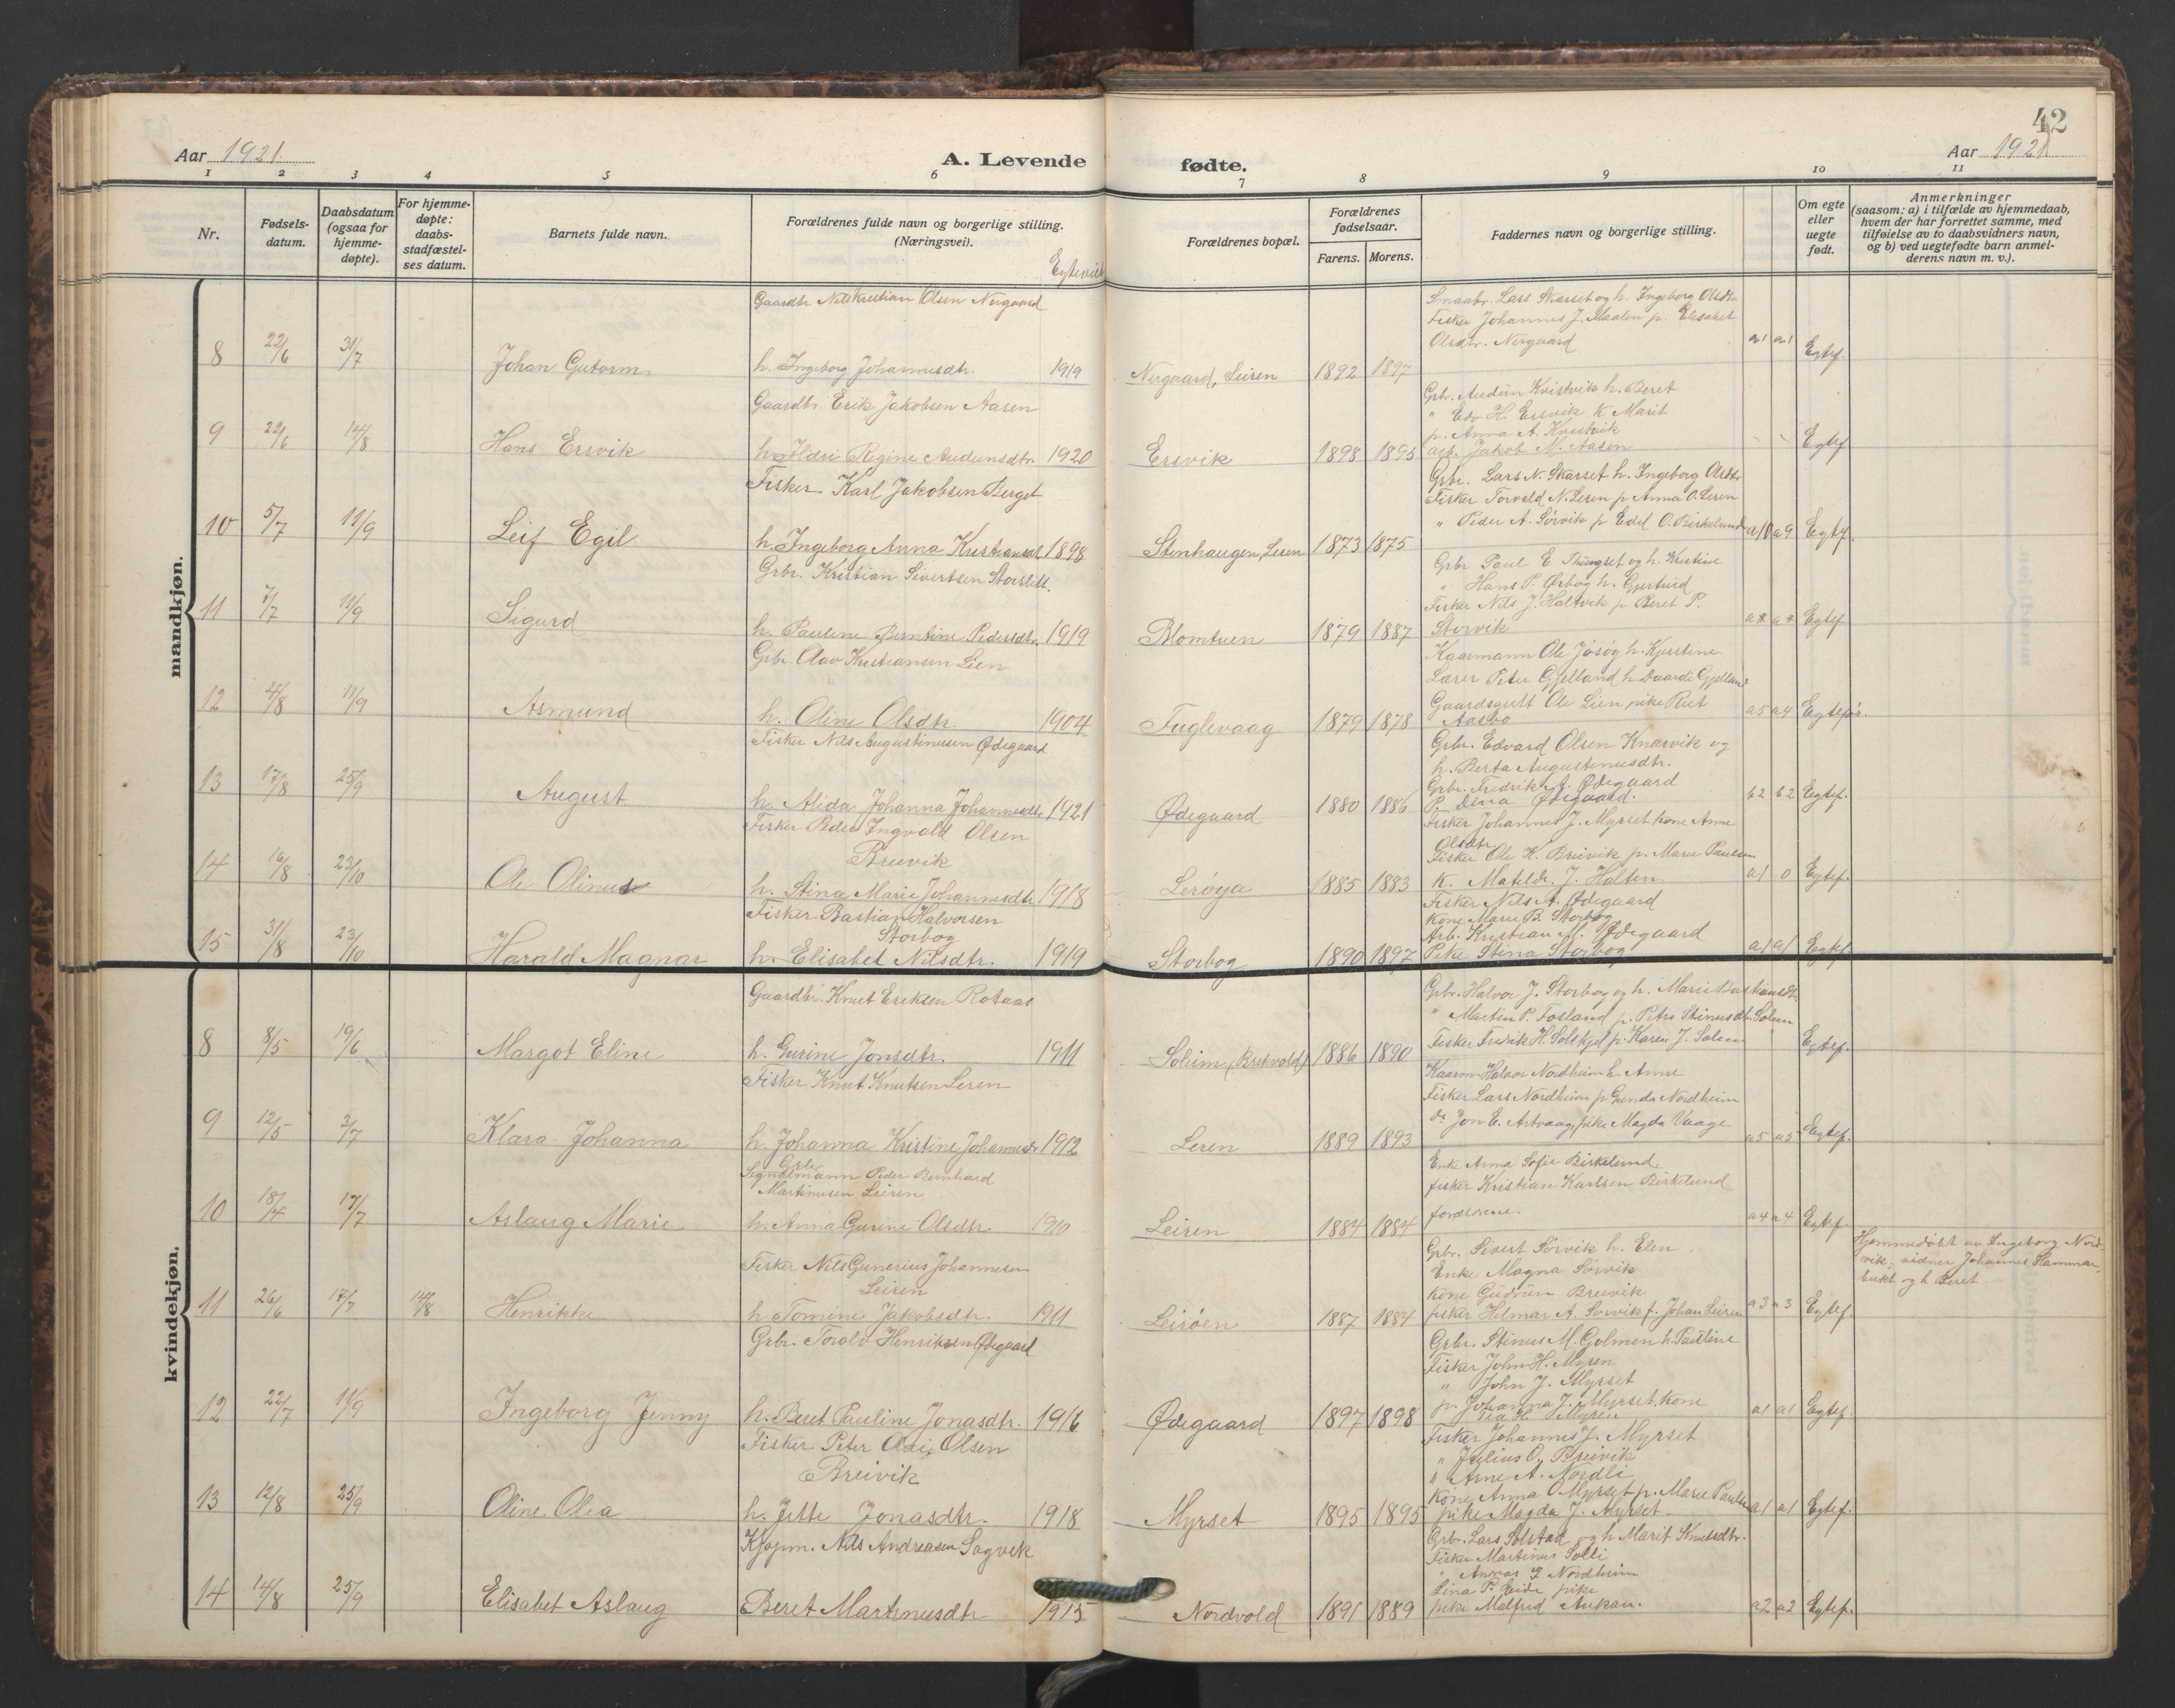 42
Aar 1921.
A. Levende
fødte.
Aar 1921
1 2 3 4 5 6 7 8 9 10 11
Nr.
Fødsels-
datum.
Daabsdatum
(ogsaa for
hjemme-
døpte).
For hjemme-
døpte:
daabs-
stadfæstel-
ses datum.
Barnets fulde navn.
Forældrenes fulde navn og borgerlige stilling.
(Næringsvei).
Egteviet
Forældrenes bopæl.
Forældrenes
fødselsaar.
Farens. Morens.
Faddernes navn og borgerlige stilling.
Om egte
eller
uegte
født.
Anmerkninger
(saasom: a) i tilfælde av hjemmedaab,
hvem der har forrettet samme, med
tilføielse av to daabsvidners navn,
og b) ved uegtefødte barn anmel-
derens navn m. v.).
mandkjøn.
Gaardbr. Nils Kristian Olsen Nergaard
Smaabr. Lars Skarset og h. Ingeborg Olsdtr.
Fisker Johannes J. Maalen p. Elisabet
Olsdtr. Nergaard
8 22/6 31/7 Johan Gutorm h. Ingeborg Johannesdtr. 1919 Nergaard, Leiren 1892 1897 a1 a1 Egtef.
Gaardbr. Erik Jakobsen Aasen
Grbr. Audun Kvistvik h. Beret
" Edv H. Ersvik k Marit
p. Anna A. Kvistvik
arb. Jakob M. Aasen
9 22/6 14/8 Hans Ersvik h. Ildri Regine Audunsdtr. 1920 Ersvik 1898 1895 Egtef
Fisker Karl Jakobsen Berget
Grbr. Lars N. Skarset h. Ingeborg Olsdtr
Fisker Torvald N. Leren p Anna O. Leren
" Peder A. Sørvik p Edel O. Birkelund
10 5/7 11/9 Leif Egil h. Ingeborg Anna Kristiansdt. 1898 Stenhaugen, Leren 1873 1875 a10 a9 Egtf.
Grbr. Kristian Sivertsen Storslett.
Grbr Paul E Thungset og h. Kristine
" Hans P. Ørbog h. Gjertrud
Fisker Nils J. Haltvik p Beret P.
Storvik
11 7/7 11/9 Sigurd h. Pauline Berntine Pedersdtr. 1919 Blomtuen 1879 1887 Egtef
Grbr. Olav Kristiansen Lien
Kaarmann Ole Jøsøy h. Kjerstine
Lærer Peter Gjelland h Daarde Gjelland
Gaardsgutt Ole Lien, pike Rut
Aasbø
12 4/8 11/9 Asmund h. Oline Olsdtr. 1904 Fuglevaag 1879 1878 a5 a4 Egtefør.
Fisker Nils Augustinusen Ødegaard
Grbr. Edvard Olsen Knarvik og
h. Berta Augustinusdtr.
Grbr. Fredrik A. Ødegaard
P. Dina Ødegaard.
13 17/8 25/9 August h. Alida Johanna Johannesdtr. 1921 Ødegaard 1880 1886 b2 b2 Egtef.
Fisker Peder Ingvald Olsen
Breivik
Fisker Johannes J. Myrset kone Anne
Olsdtr.
Fisker Ole K. Breivik p. Marie Paulsen
K. Matilde J. Holten
14 16/8 23/10 Ole Olinus h. Stina Marie Johannesdtr 1918 Lerøya 1885 1883 a1 0 Egtef.
Fisker Bastian Halvorsen
Storbog
Fisker Nils A. Ødegaard
kone Marie B. Storbog
Arb. Kristian M. Ødegaard
Pike Stina Storbog
15 31/8 23/10 Harald Magnar h. Elisabet Nilsdtr. 1919 Storbog 1890 1897 a1 a1 Egtef.
kvindekjøn.
Gaardbr. Knut Eriksen Rotaas
Grbr. Halvor J. Storbog og h. Marie Bastiansdtr.
" Martin P. Fosland p. Petra Stinusdtr. Solem
Fisker Fredrik H. Solskjel p. Karen J. Solem
8 8/5 19/6 Margot Eline h. Gurine Jonsdtr. 1911 Soleim (Breivold) 1886 1890 Egtef.
Fisker Knut Knutsen Leren
Kaarm Halvor Nordheim h. Anne
Fisker Lars Nordheim p Gunda Nordheim
do Jon E. Artvaag, pike Magda Vaage
9 12/5 3/7 Klara Johanna h. Johanna Kristine Johannesdtr 1912 Leren 1889 1893 a5 a5 Egtef.
Grbr.
Signalmann Peder Bernhard
Martinusen Leiren
Enke Anna Sofie Birkelund
fisker Kristian Karlsen Birkelund
forældrene.
10 18/4 17/7 Aslaug Marie h. Anna Gurine Olsdtr. 1910 Leiren 1884 1884 a4 a4 Egtef.
Fisker Nils Gunerius Johannesen
Leiren
Grbr. Sivert Sørvik h. Elen
Enke Magna Sørvik
kone Gudrun Breivik
fisker Hilmar A. Sørvik f. Johan Leiren
Hjemmedøbt av Ingeborg Nord-
vik, vidner Johannes Hammer-
bukt og h Beret.
11 26/6 17/7 14/8 Henrikke h Tomine Jakobsdtr. 1911 Leirøen 1887 1884 a3 a3 Egtef.
Grbr. Torolv Henriksen Ødegaard
Grbr. Stinus M. Golmen h. Pauline
Fisker John H. Myren
" John J. Myrset
p. Johanna J. Myrset, kone
Myren
12 22/7 11/9 Ingeborg Jenny h. Beret Pauline Jonasdtr. 1916 Ødegaard 1897 1898 a1 a1 Egtef.
Fisker Peter Olai Olsen
Breivik
Fisker Johannes J. Myrset
" Julius O. Breivik
" Arne A. Nordli
Kone Anna O Myrset p. Marie Paulse
pike Magda J. Myrset.
13 12/8 25/9 Oline Olea h. Jette Jonasdtr. 1918 Myrset 1895 1895 a1 a1 Egtef.
Kjøpm. Nils Andreasen Sagvik
Grbr. Lars Solstad og h Marit Knutsdtr.
Fisker Martinus Solli
" Annas Nordheim
Lina P. Eide pike
pike Malfrid Aukan.
14 14/8 25/9 Elisabet Aslaug Beret Martinusdtr 1915 Nordvold 1891 1889 a2 a2 Egtef.